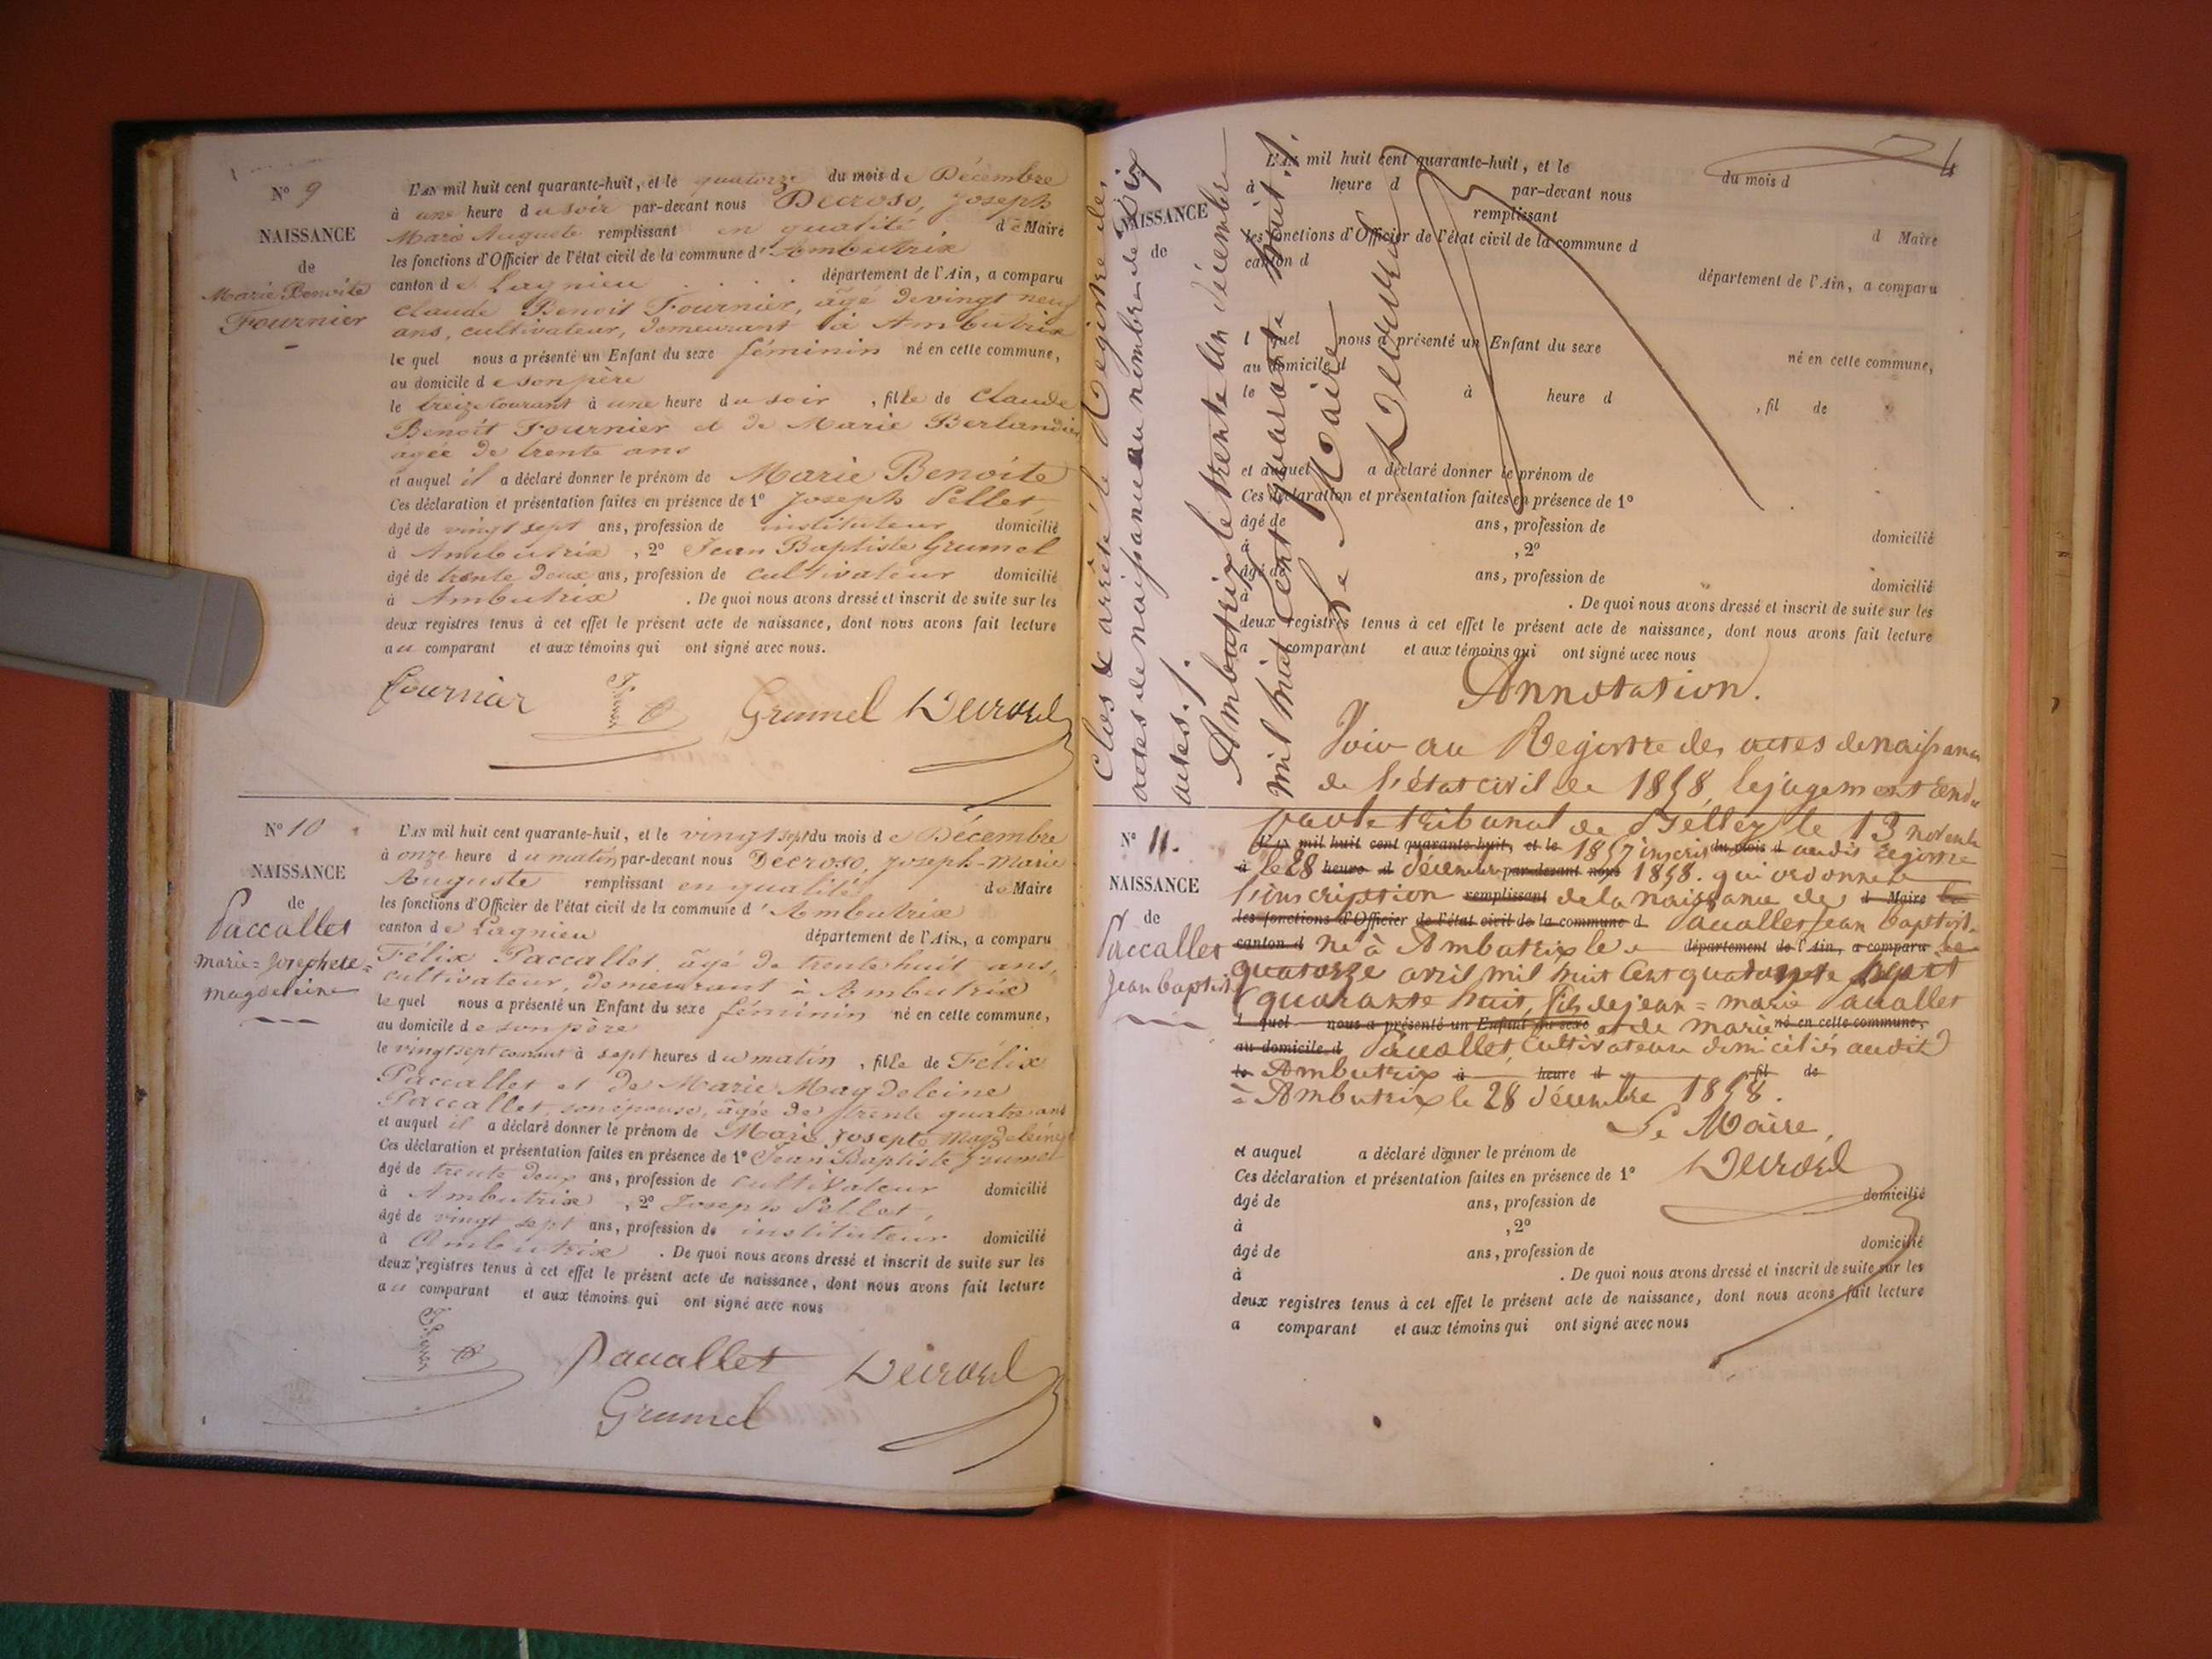 N° 9
NAISSANCE
de
Marie Benoite
Fournier
L'AN mil huit cent quarante-huit, et le quatorze du mois de Décembre
à une heure du soir par-devant nous Decroso, Joseph
Marie Auguste remplissant en qualité de Maire
les fonctions d'Officier de l'état civil de la commune d'Ambutrix
canton de Lagnieu département de l'Ain, a comparu
Claude Benoit Fournier, âgé de vingt neuf
ans, cultivateur, demeurant à Ambutrix
lequel nous a présenté un Enfant du sexe féminin né en cette commune,
au domicile de son père
le treize courant à une heure du soir, fille de Claude
Benoît Fournier et de Marie Berlandier
agée de trente ans
et auquel il a déclaré donner le prénom de Marie Benoite
Ces déclaration et présentation faites en présence de 1° Joseph Pellet,
âgé de vingt sept ans, profession de instituteur domicilié
à Ambutrix, 2° Jean Baptiste Grumel
âgé de trente deux ans, profession de cultivateur domicilié
à Ambutrix. De quoi nous avons dressé et inscrit de suite sur les
deux registres tenus à cet effet le présent acte de naissance, dont nous avons fait lecture
au comparant et aux témoins qui ont signé avec nous.
fournier Grumel Decroso
N° 10
NAISSANCE
de
Paccallet
marie=Josephete=
magdeleine
L'AN mil huit cent quarante-huit, et le vingt sept du mois de Décembre
à onze heure du matin par-devant nous Decroso, Joseph-Marie
Auguste remplissant en qualité de Maire
les fonctions d'Officier de l'état civil de la commune d'Ambutrix
canton de Lagnieu département de l'Ain, a comparu
Félix Paccallet, âgé de trente huit ans,
cultivateur, demeurant à Ambutrix
lequel nous a présenté un Enfant du sexe féminin né en cette commune,
au domicile de son père
le vingt sept courant à sept heures du matin, fille de Félix
Paccallet et de Marie Magdeleine
Paccallet, son épouse, âgée de trente quatre ans
et auquel il a déclaré donner le prénom de Marie Josepte Magdeleine
Ces déclaration et présentation faites en présence de 1° Jean Baptiste Grumel
âgé de trente deux ans, profession de cultivateur domicilié
à Ambutrix, 2° Joseph Pellet,
âgé de vingt sept ans, profession de instituteur domicilié
à Ambutrix. De quoi nous avons dressé et inscrit de suite sur les
deux registres tenus à cet effet le présent acte de naissance, dont nous avons fait lecture
au comparant et aux témoins qui ont signé avec nous
Pacallet Decroso
Grumel
Clos & arrêté le Registre des
actes de naissance au nombre de Dix
actes./.
Ambutrix le trente un décembre
mil huit cent quarante huit./.
Le Maire
Decroso
4
NAISSANCE
de
L'AN mil huit cent quarante-huit, et le du mois d
à heure d par-devant nous
remplissant d Maire
les fonctions d'Officier de l'état civil de la commune d
canton d département de l'Ain, a comparu
l quel nous a présenté un Enfant du sexe né en cette commune,
au domicile d
le à heure d , fil de
et auquel a déclaré donner le prénom de
Ces déclaration et présentation faites en présence de 1°
âgé de ans, profession de domicilié
à , 2°
âgé de ans, profession de domicilié
à . De quoi nous avons dressé et inscrit de suite sur les
deux registres tenus à cet effet le présent acte de naissance, dont nous avons fait lecture
a comparant et aux témoins qui ont signé avec nous
Annotation.
Voir au Registre des actes de naissance
de l'état civil de 1858, le jugement rendu
par le tribunal de Belley le 13 novembre
N° 11.
NAISSANCE
de
Paccallet
Jean baptiste
L'AN mil huit cent quarante-huit, et le 1857 inscrit du mois d audit registre
à le 28 heure d décembre par-devant nous 1858. qui ordonne
l'inscription remplissant de la naissance de d Maire
les fonctions d'Officier de l'état civil de la commune d Paccallet Jean baptist.
canton d né à Ambutrix le département de l'Ain, a comparu le
quatorze avril mil huit cent quarante
quarante huit, fils de jean=marie Pacallet
l quel nous a présenté un Enfant du sexe et de marie né en cette commune,
au domicile d Pacallet, cultivateurs domiciliés audit
le Ambutrix à heure d fil de
à Ambutrix le 28 décembre 1858.
Le Maire,
et auquel a déclaré donner le prénom de
Decroso
Ces déclaration et présentation faites en présence de 1°
âgé de ans, profession de domicilié
à , 2°
âgé de ans, profession de domicilié
à . De quoi nous avons dressé et inscrit de suite sur les
deux registres tenus à cet effet le présent acte de naissance, dont nous avons fait lecture
a comparant et aux témoins qui ont signé avec nous